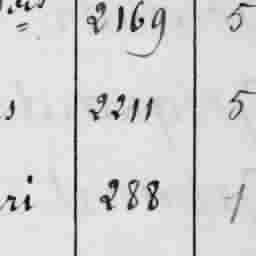 2169 5
s 2211 5
ri 288 1